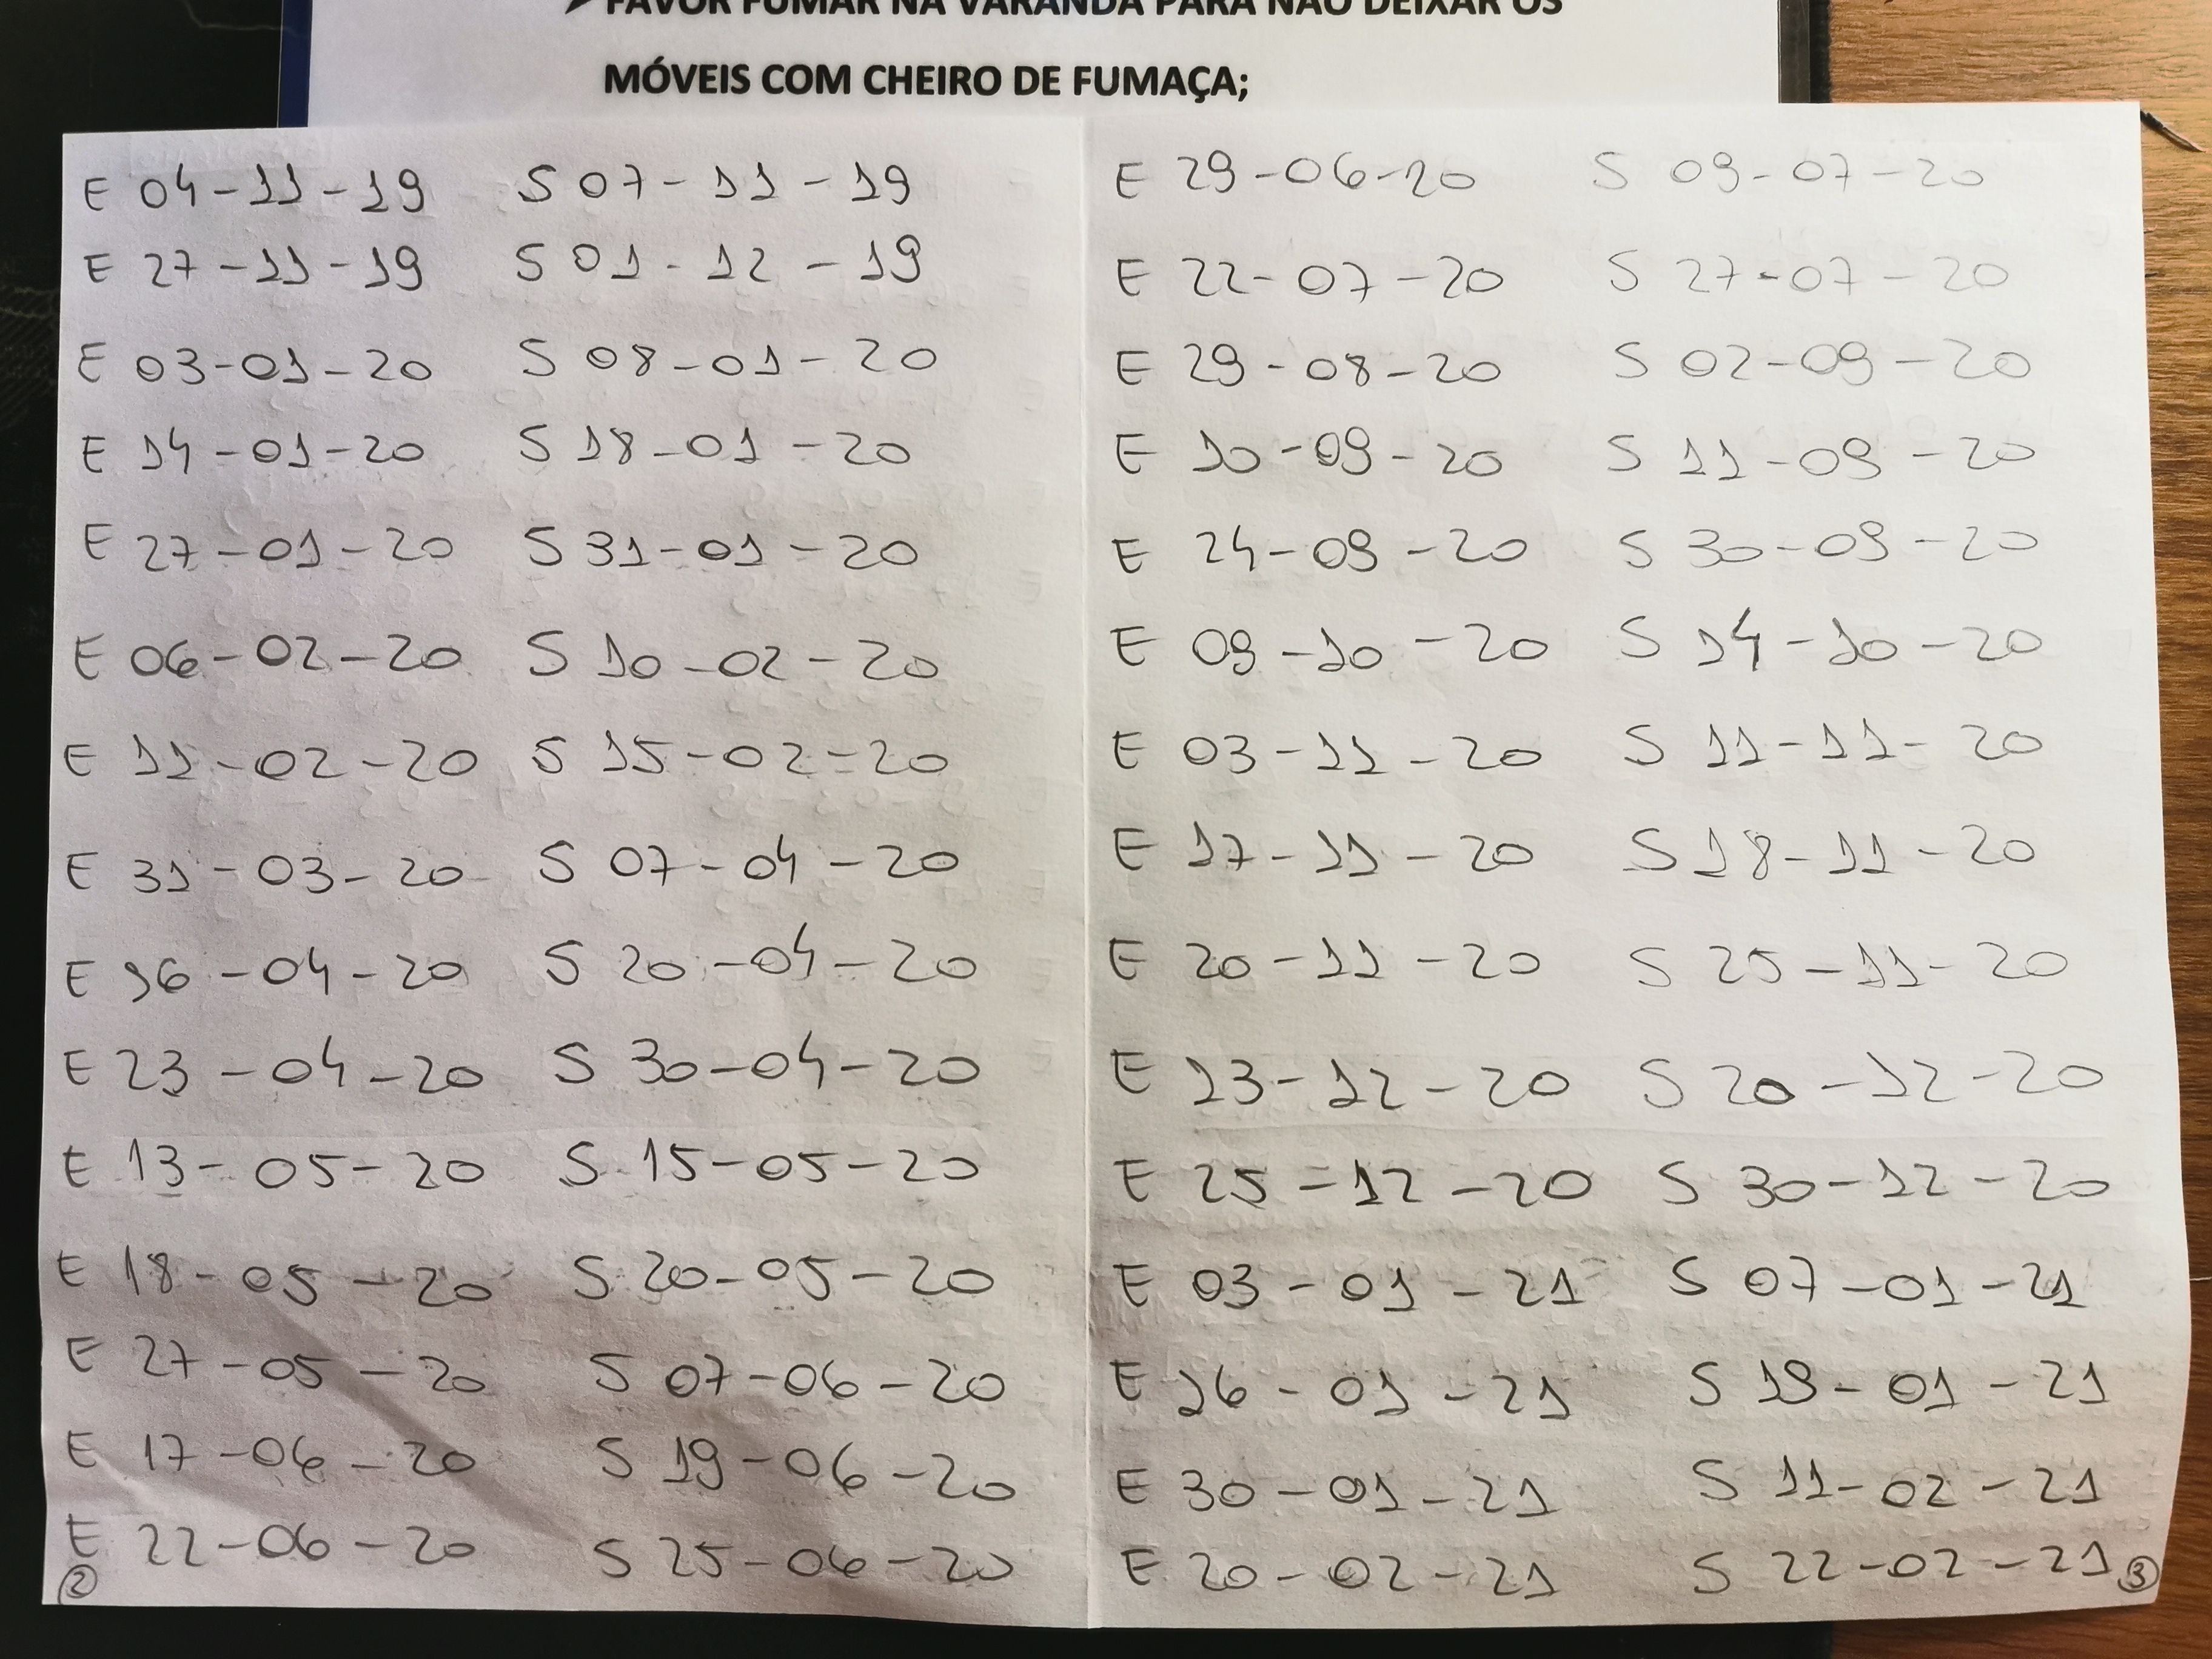 FAVOR FUMAR NA VARANDA PARA NÃO DEIXAR OS
MÓVEIS COM CHEIRO DE FUMAÇA;
E 04-11-19 S 07-11-19
E 27-11-19 S 01-12-19
E 03-01-20 S 08-01-20
E 14-01-20 S 18-01-20
E 27-01-20 S 31-01-20
E 06-02-20 S 10-02-20
E 11-02-20 S 15-02-20
E 31-03-20 S 07-04-20
E 16-04-20 S 20-04-20
E 23-04-20 S 30-04-20
E 13-05-20 S 15-05-20
E 18-05-20 S 20-05-20
E 27-05-20 S 07-06-20
E 17-06-20 S 19-06-20
E 22-06-20 S 25-06-20
2
E 29-06-20 S 09-07-20
E 22-07-20 S 27-07-20
E 29-08-20 S 02-09-20
E 10-09-20 S 11-09-20
E 24-09-20 S 30-09-20
E 09-10-20 S 14-10-20
E 03-11-20 S 11-11-20
E 17-11-20 S 18-11-20
E 20-11-20 S 25-11-20
E 13-12-20 S 20-12-20
E 25-12-20 S 30-12-20
E 03-01-21 S 07-01-21
E 16-01-21 S 19-01-21
E 30-01-21 S 11-02-21
E 20-02-21 S 22-02-21
3